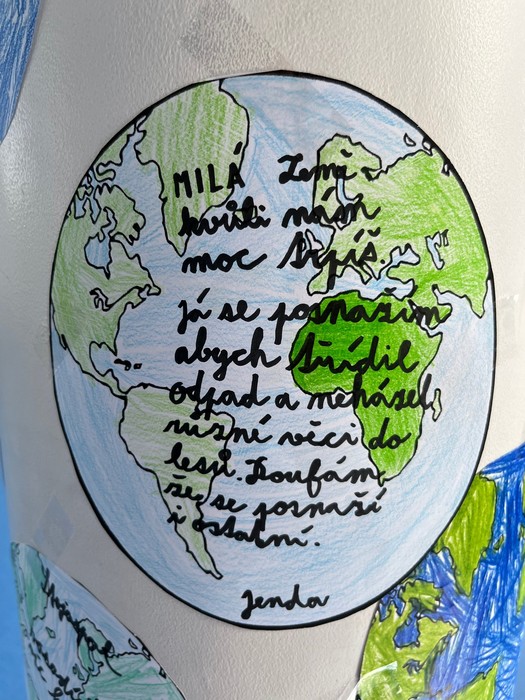 MILÁ Země,
kvůli nám
moc trpíš.
Já se posnažim
abych třídil
odpad a neházel
různí věci do
lesů. Doufám
že se posnaží
i ostatní.
Jenda